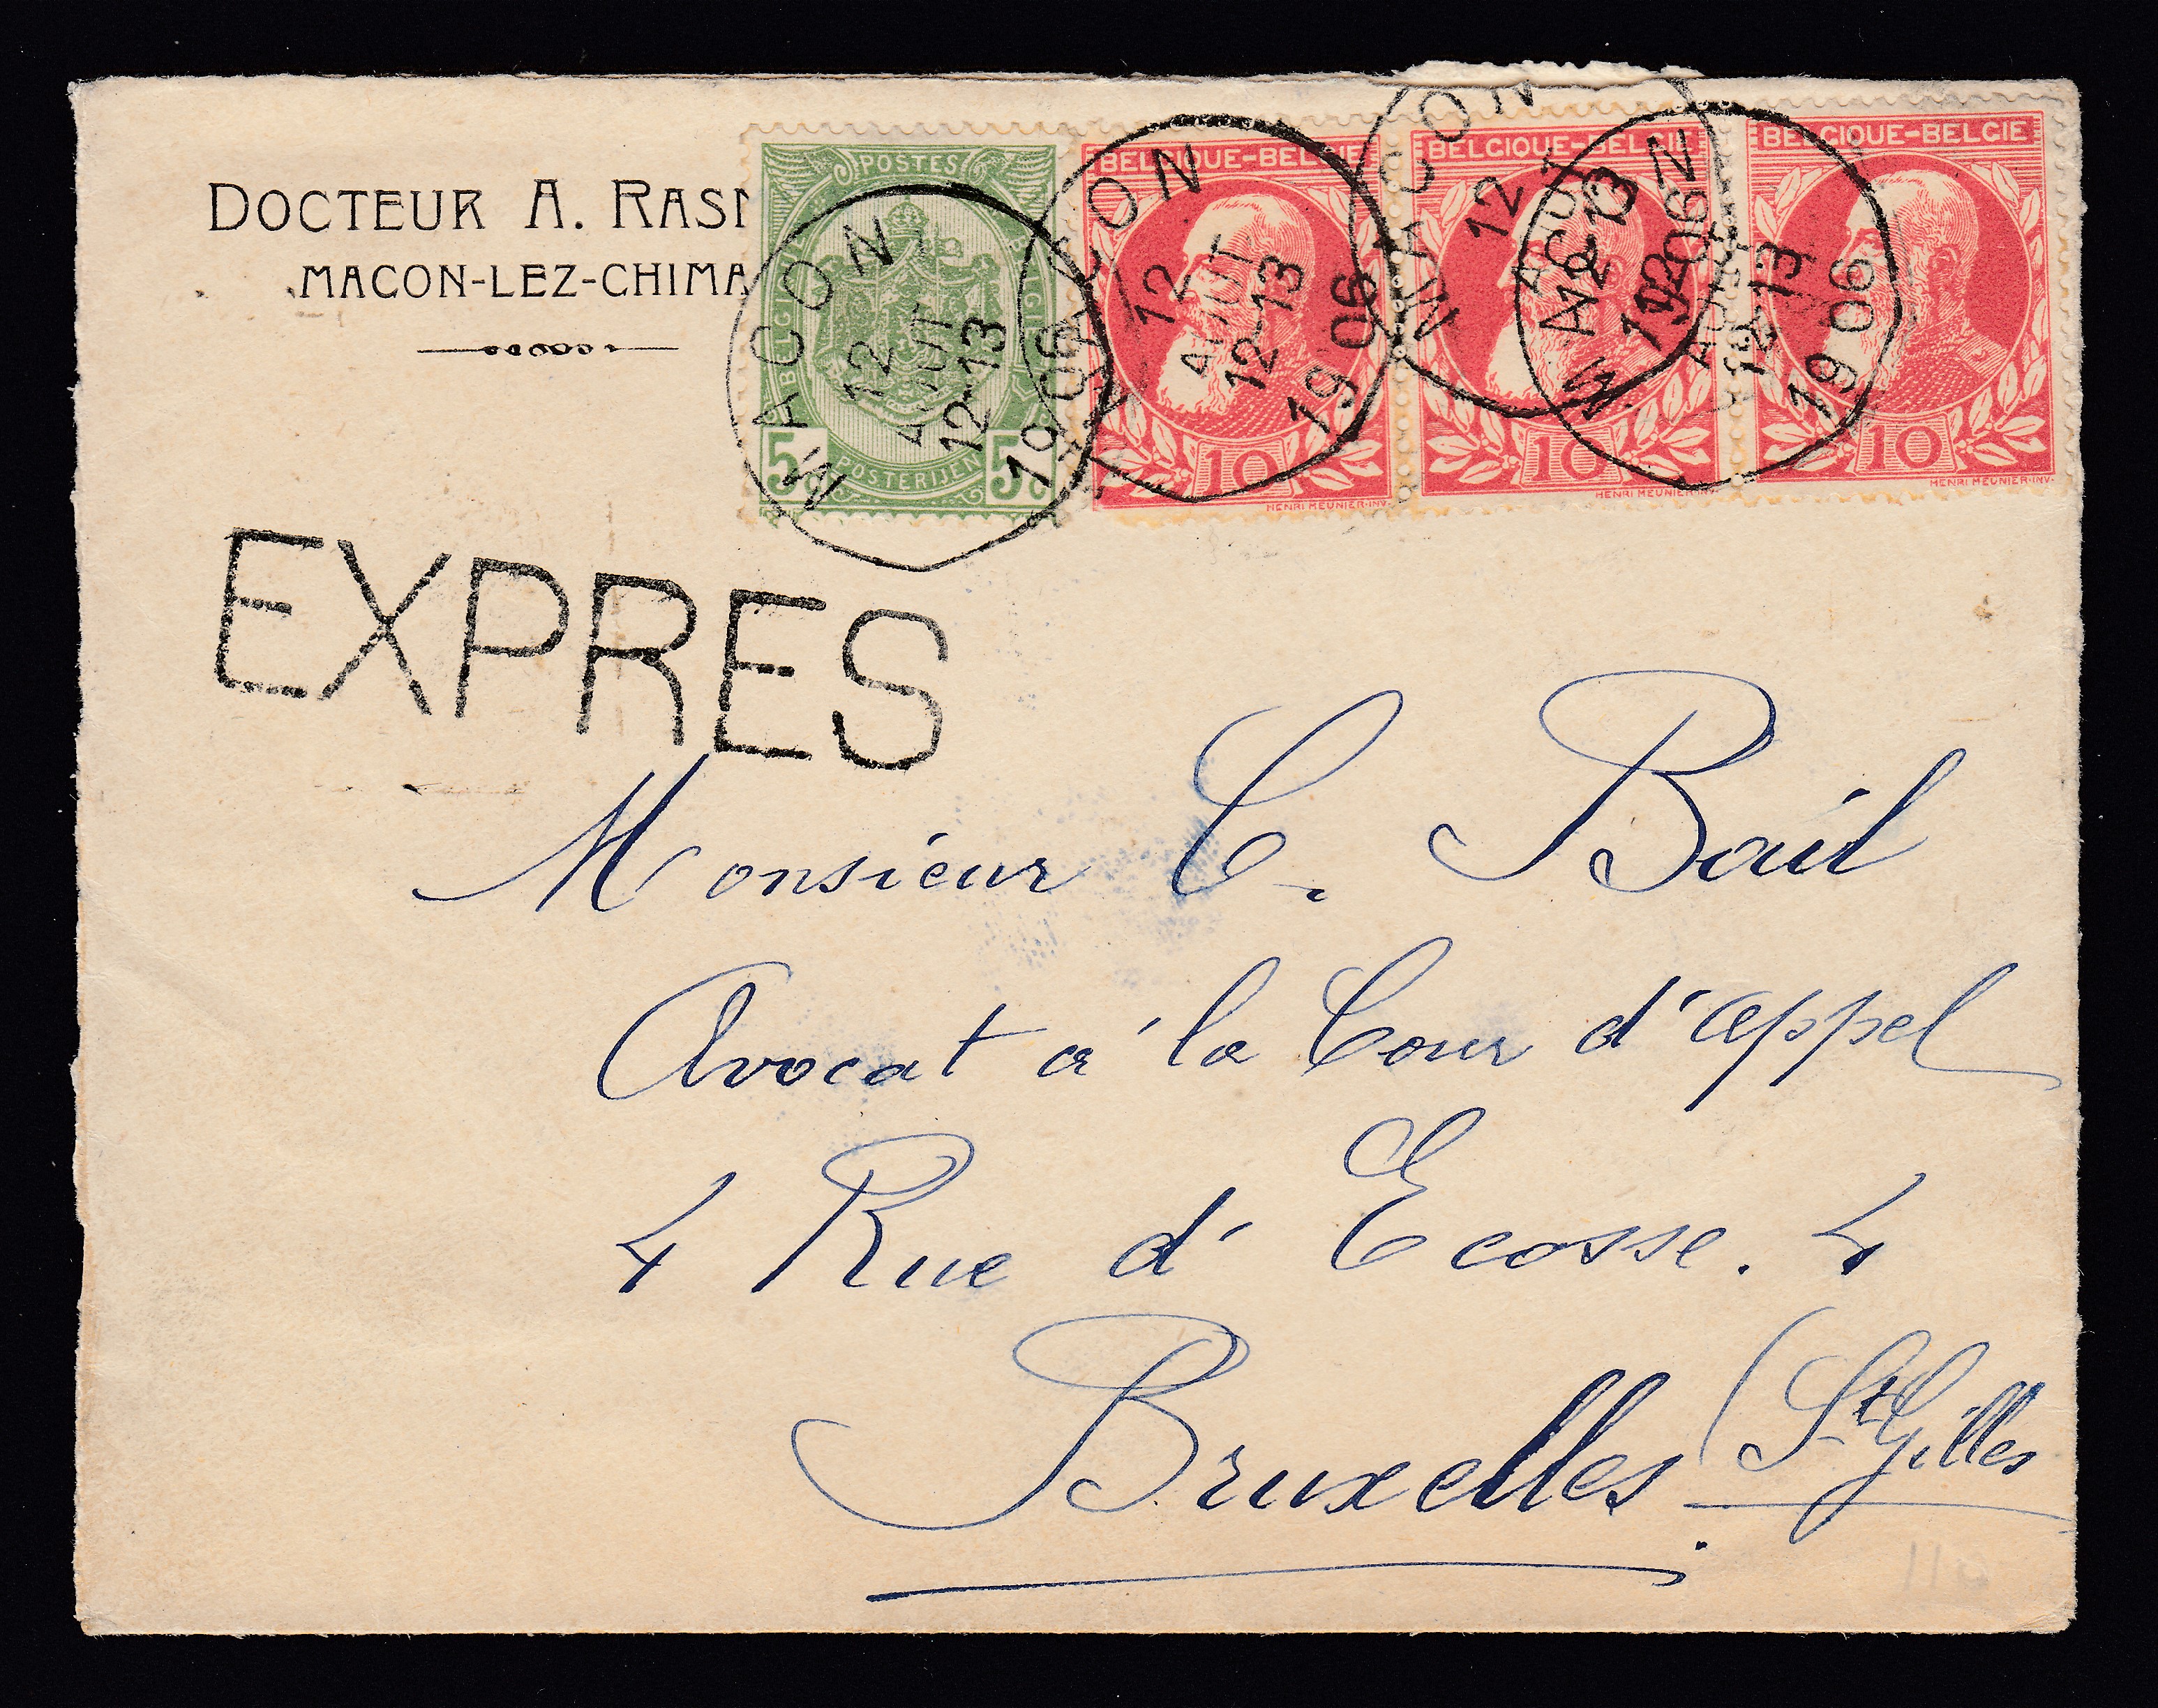 DOCTEUR A. RAS
MACON-LEZ-CHIMA
POSTES
BELGIQUE
BELGIË
5c 5c
POSTERIJEN
BELGIQUE-BELGIE
10
HENRI MEUNIER·INV.
BELGIQUE-BELGIE
10
HENRI MEUNIER·INV.
BELGIQUE-BELGIE
10
HENRI MEUNIER·INV.
MACON
12
AOUT
12-13
1906
MACON
12
AOUT
12-13
1906
MACON
12
AOUT
12-13
1906
MACON
12
AOUT
12-13
1906
EXPRES
Monsieur C. Bail
Avocat à la Cour d'appel
4 Rue d'Ecosse. 4
Bruxelles. (St Gilles